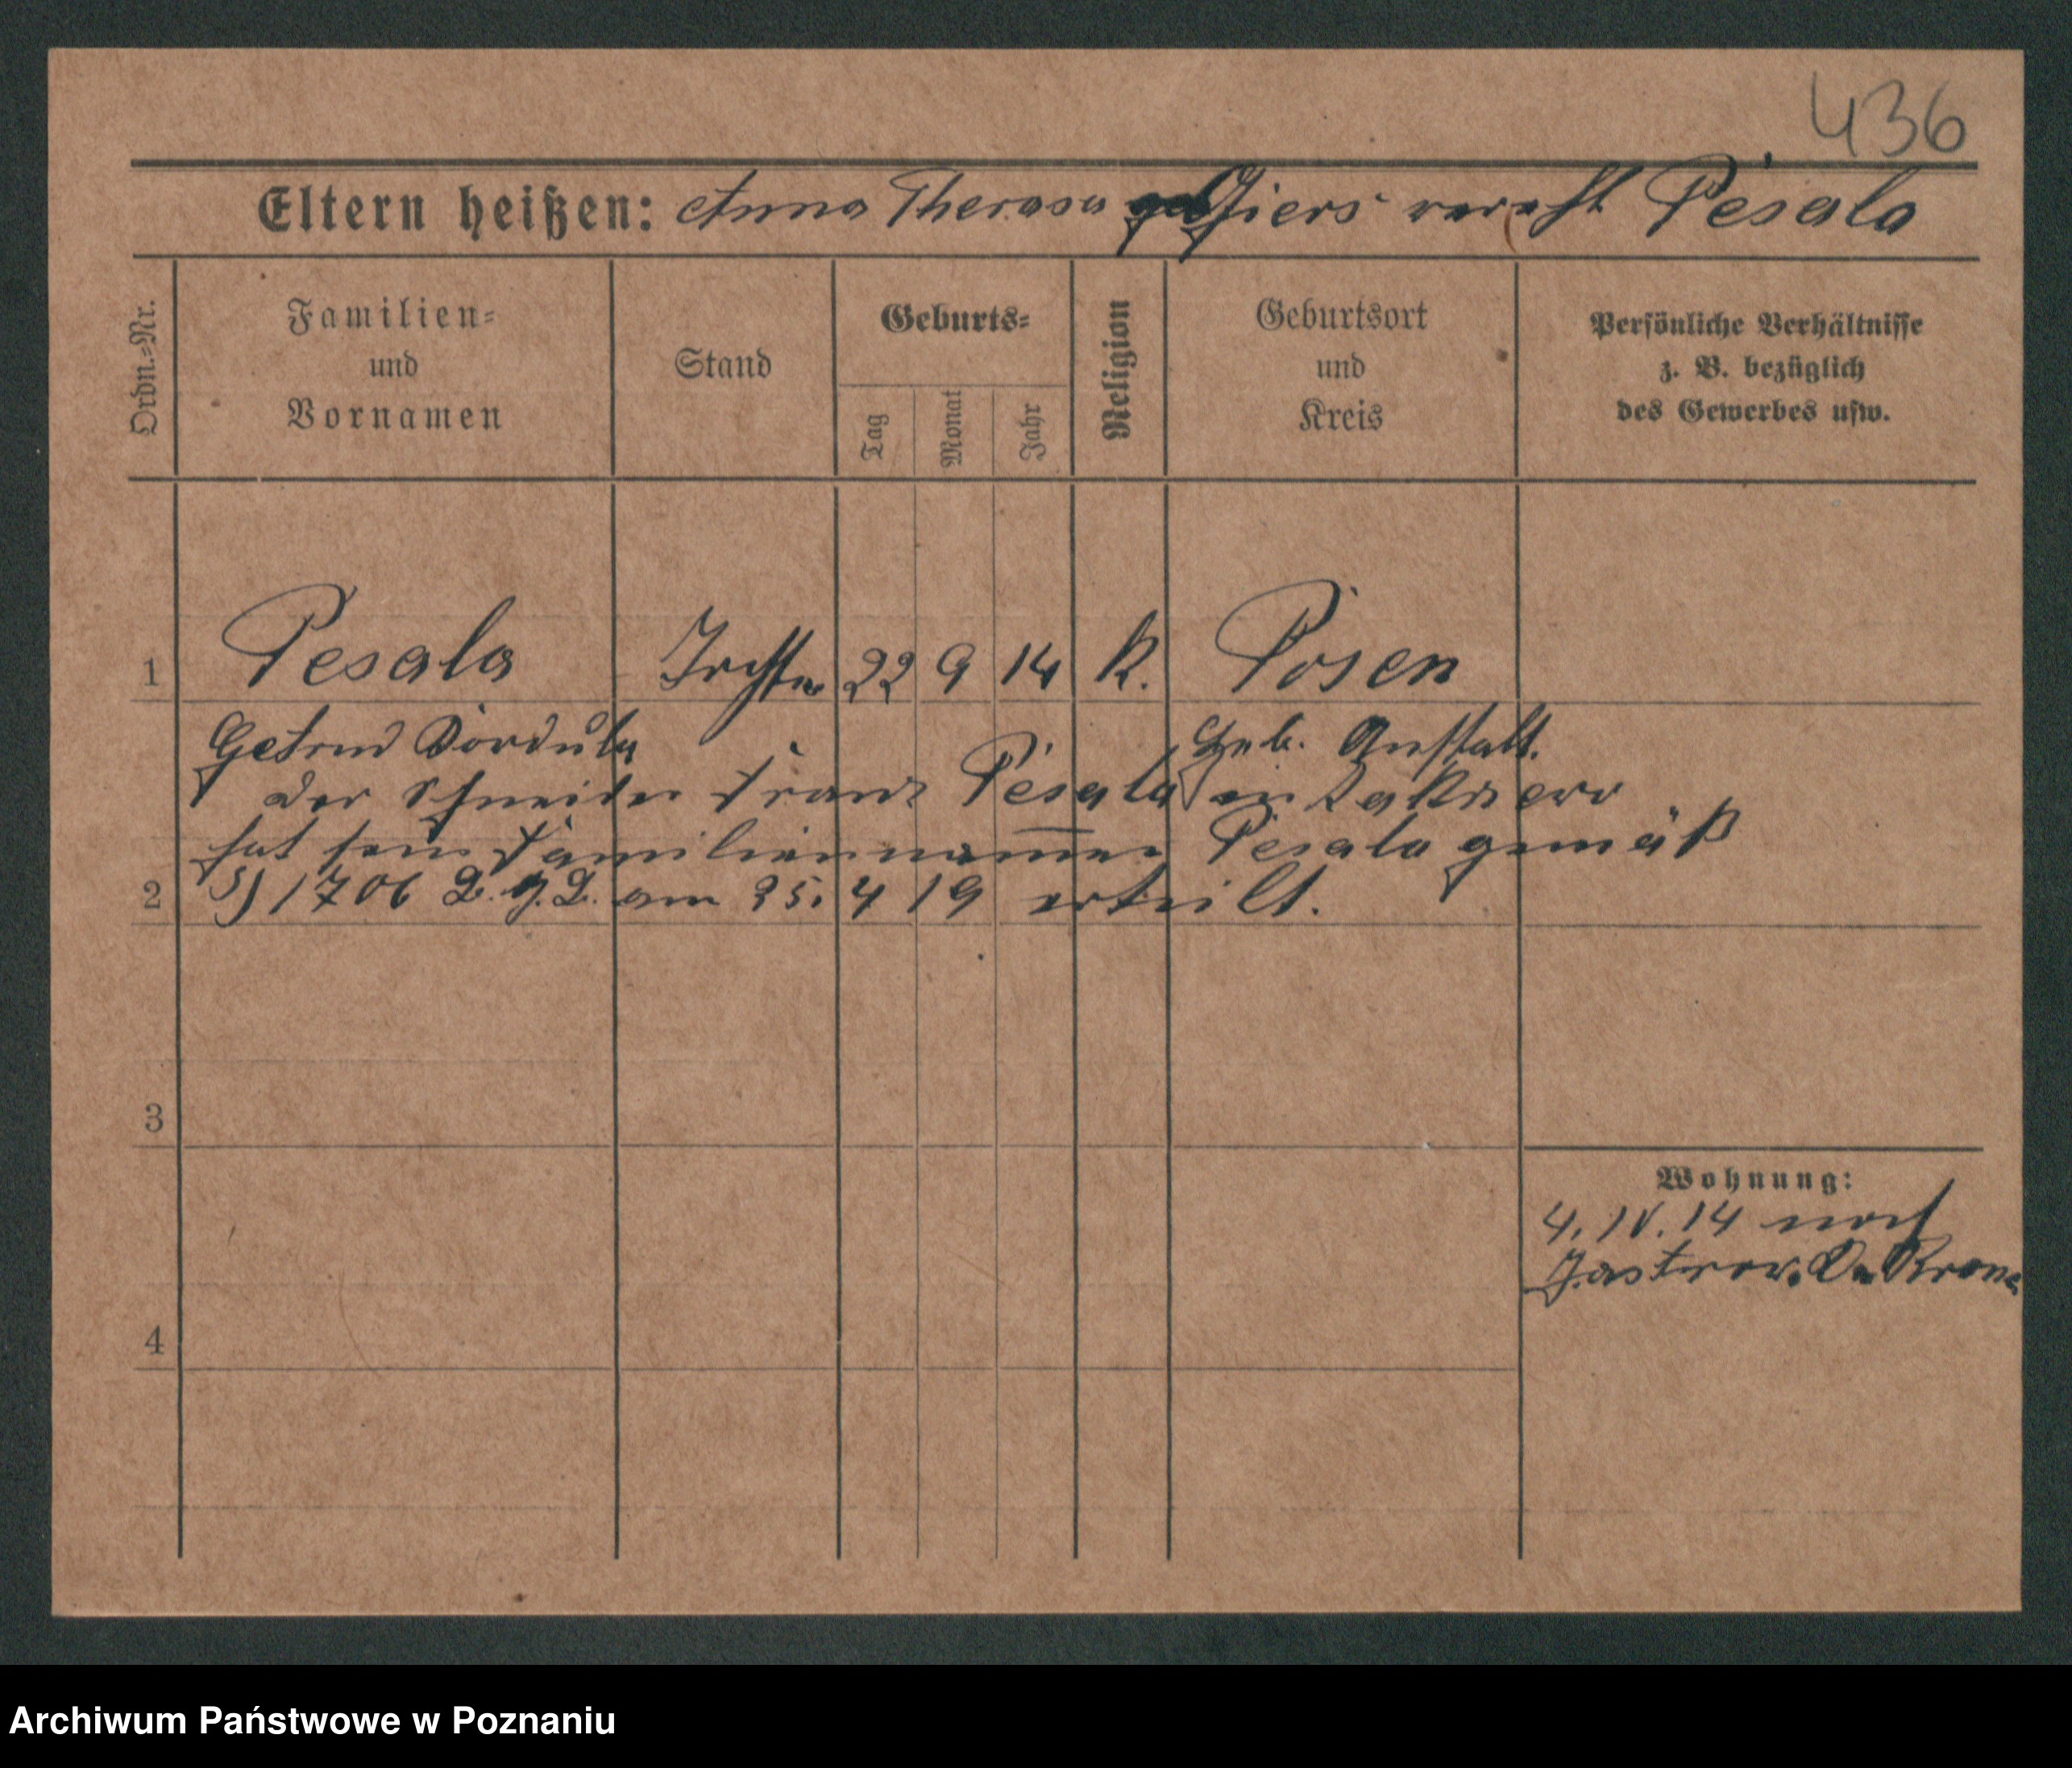 436
Eltern heißen: Anna Theresa geb. Giers verehl. Pesala
Ordn.-Nr.
Familien-
und
Vornamen
Stand
Geburts-
Tag
Monat
Jahr
Religion
Geburtsort
und
Kreis
Persönliche Verhältnisse
z. B. bezüglich
des Gewerbes usw.
1 Pesala Tochter 22 9 14 k. Posen
Getrud Kordula Geb. Anstalt.
der Schneider Franz Pesala in
hat sein Familiennamen Pesala gemäß
2 §) 1706 B.g.B. am 25. 4 19 erteilt.
3
4
Wohnung:
4. IV. 14 nach
Jastrow. Dt. Krone
Archiwum Państwowe w Poznaniu